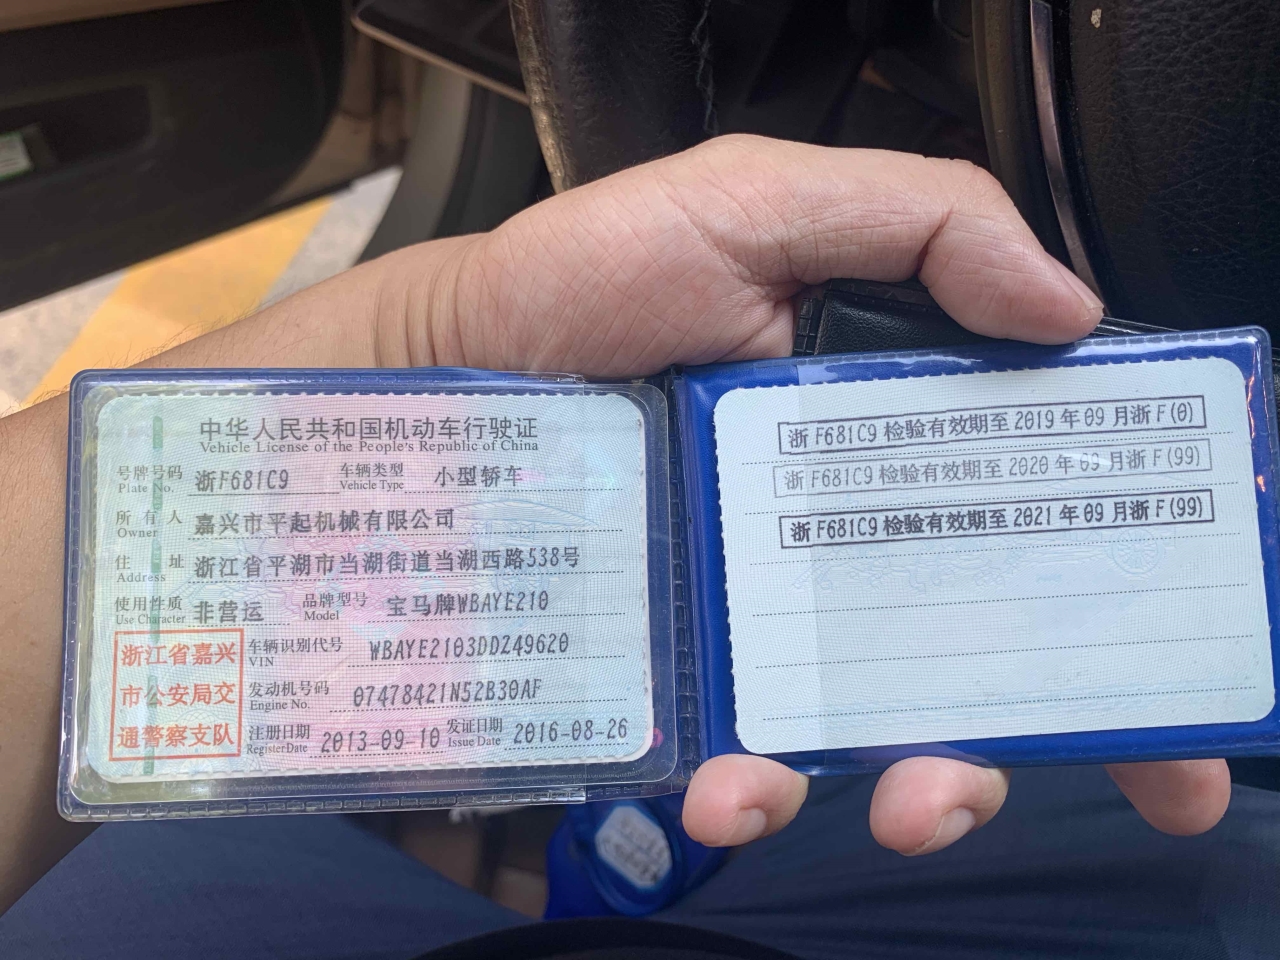 中华人民共和国机动车行驶证
Vehicle License of the People's Republic of China
号牌号码 浙F681C9 车辆类型 小型轿车
Plate No. Vehicle Type
所有人 嘉兴市平起机械有限公司
Owner
住址 浙江省平湖市当湖街道当湖西路538号
Address
使用性质 非营运 品牌型号 宝马牌WBAYE210
Use Character Model
浙江省嘉兴
市公安局交
通警察支队
车辆识别代号 WBAYE2103DDZ49620
VIN
发动机号码 07478421N52B30AF
Engine No.
注册日期 2013-09-10 发证日期 2016-08-26
Register Date Issue Date
浙F681C9 检验有效期至 2019年09月浙F(0)
浙F681C9 检验有效期至 2020年09月浙F(99)
浙F681C9 检验有效期至 2021年09月浙F(99)